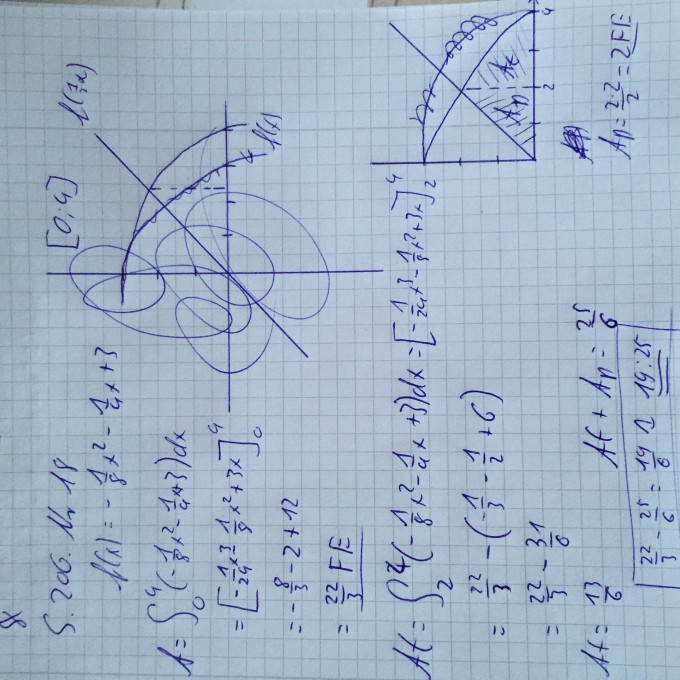 8
S. 206. Nr 18
[0;4]
f(x) = -1/8 x² - 1/4 x + 3
A = ∫₀⁴ (-1/8 x² - 1/4 x + 3) dx
= [-1/24 x³ - 1/8 x² + 3x]₀⁴
= -8/3 - 2 + 12
= 22/3 FE
f(x)
4
Af = ∫₂⁴ (-1/8 x² - 1/4 x + 3) dx = [-1/24 x³ - 1/8 x² + 3x]₂⁴
= 22/3 - (-1/3 - 1/2 + 6)
= 22/3 - 31/6
Af = 13/6
Af + Ap = 25/6
22/3 - 25/6 = 19/6
19:25
Ap
Af
2
4
Ap = 2·2/2 = 2FE